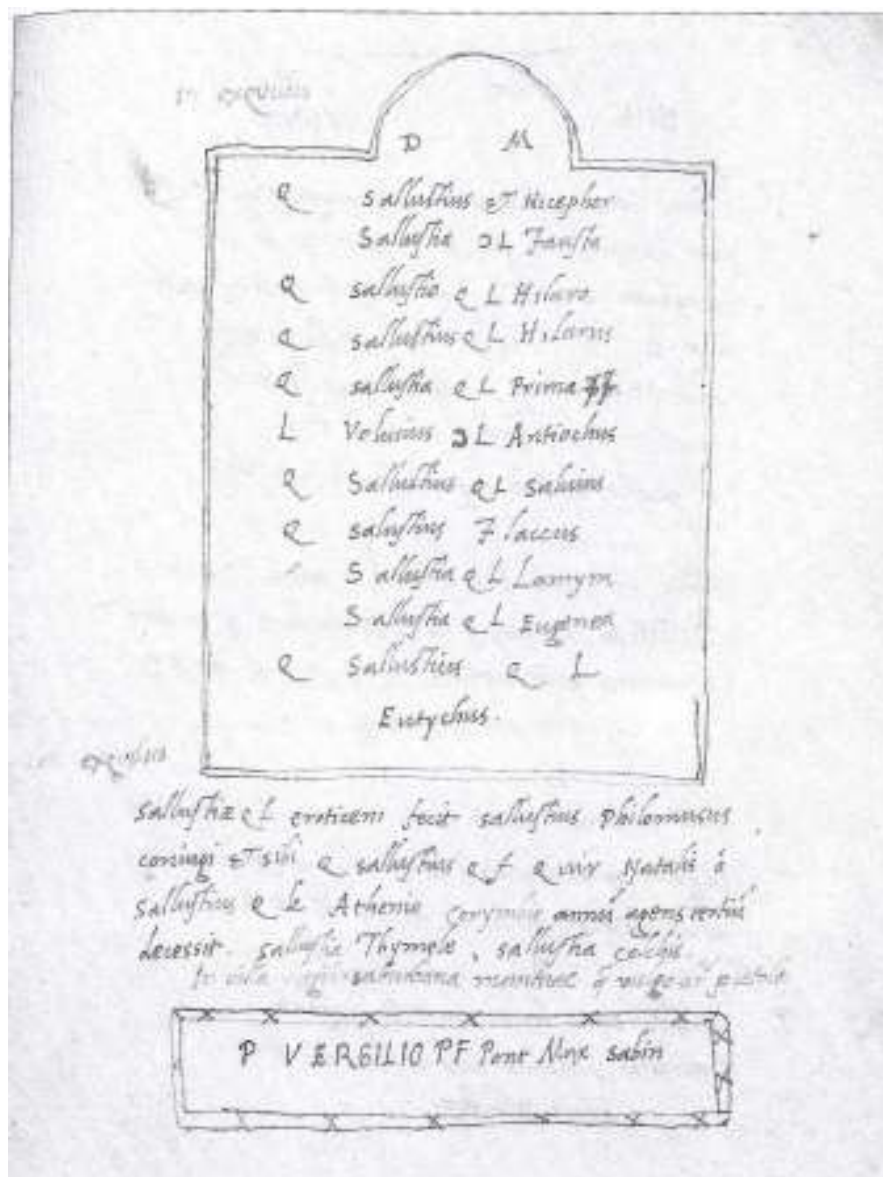 in exquiliis
D M
Q Sallustius et Nicephor
Sallustia Ɔ L Fausta
Q Sallustio Q L Hilaro
Q Sallustius Q L Hilarus
Q Sallustia Q L Prima
L Volusius Ɔ L Antiochus
Q Sallustius Q L Salvius
Q Salustius Flaccus
Sallustia Q L Lamyra
Sallustia Q L Eugenea
Q Sallustius Q L
Eutychus.
exquiliis
Sallustiæ Q L eroticeni fecit sallustius Philomusus
coniugi et sibi Q sallustius Q f Q vir Natalis
sallustius Q Athenio annū agens
decessit. sallustia Thymele, sallustia colchis.
In villa
P VERGILIO PF Pont Max sabin